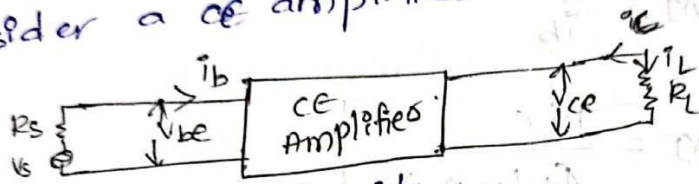 sider a CE amplifie
ib
ic
Rs
Vs
Vbe
CE
Amplifier
Vce
iL
RL